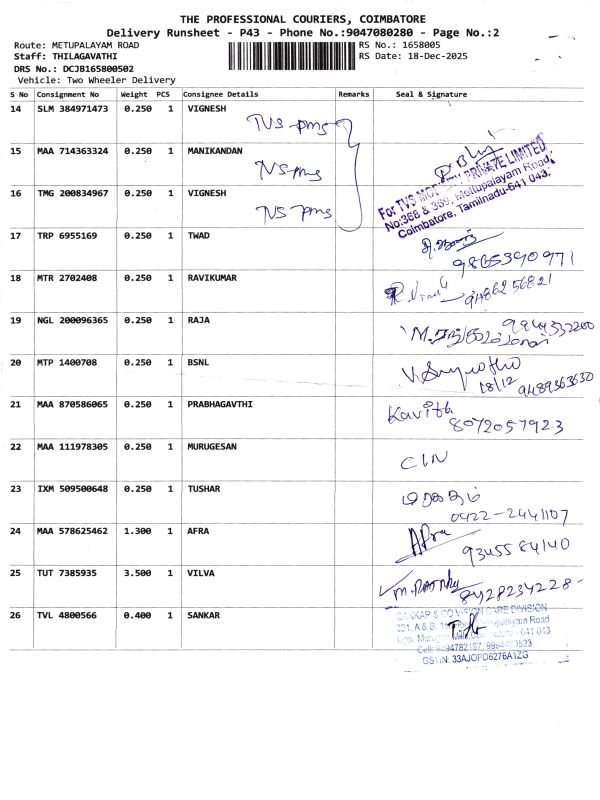 THE PROFESSIONAL COURIERS, COIMBATORE
Delivery Runsheet - P43 - Phone No.:9047080280 - Page No.:2
Route: METUPALAYAM ROAD
Staff: THILAGAVATHI
DRS No.: DCJB165800502
Vehicle: Two Wheeler Delivery
RS No.: 1658005
RS Date: 18-Dec-2025
S No Consignment No Weight PCS Consignee Details Remarks Seal & Signature
14 SLM 384971473 0.250 1 VIGNESH
TVS pms
15 MAA 714363324 0.250 1 MANIKANDAN
TVS pms
For TVS MOBILITY PRIVATE LIMITED
No:368 & 369, Mettupalayam Road,
Coimbatore, Tamilnadu-641 043.
16 TMG 200834967 0.250 1 VIGNESH
TVS pms
17 TRP 6955169 0.250 1 TWAD
9865390971
18 MTR 2702408 0.250 1 RAVIKUMAR
9486256821
19 NGL 200096365 0.250 1 RAJA
20 MTP 1400708 0.250 1 BSNL
18/12 9489363630
21 MAA 870586065 0.250 1 PRABHAGAVTHI
Kavitha
8072057923
22 MAA 111978305 0.250 1 MURUGESAN
23 IXM 509500648 0.250 1 TUSHAR
மரகதம்
0422-2441107
24 MAA 578625462 1.300 1 AFRA
Afra
9345584140
25 TUT 7385935 3.500 1 VILVA
8428234228
26 TVL 4800566 0.400 1 SANKAR
SANKAR & CO VISION CARE DIVISION
GSTIN: 33AJOPD6276A1ZG